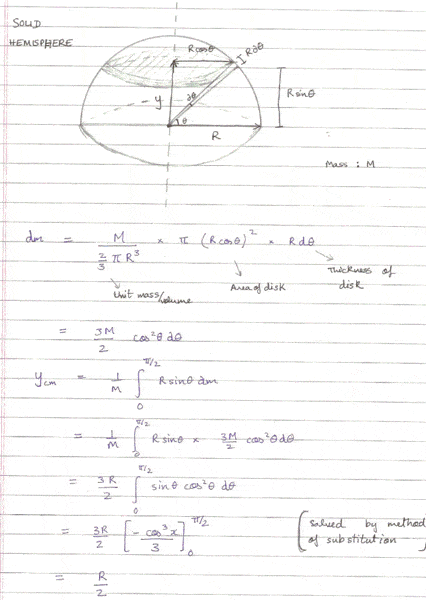 SOLID
HEMISPHERE
Rcosθ
Rdθ
y
dθ
θ
R
Rsinθ
Mass : M
dm = M / (2/3 π R³) × π (Rcosθ)² × Rdθ
Unit mass/volume
Area of disk
Thickness of disk
= 3M/2 cos²θ dθ
y_cm = 1/M ∫₀^{π/2} R sinθ dm
= 1/M ∫₀^{π/2} R sinθ × 3M/2 cos²θ dθ
= 3R/2 ∫₀^{π/2} sinθ cos²θ dθ
= 3R/2 [ - cos³x / 3 ]₀^{π/2}
[solved by method
of substitution
= R/2